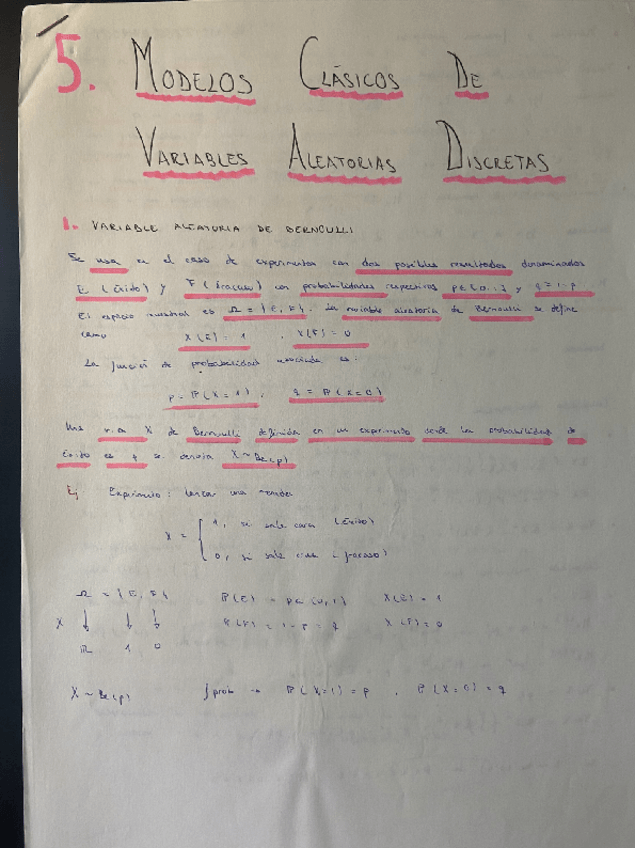 5. MODELOS CLÁSICOS DE
VARIABLES ALEATORIAS DISCRETAS
1. VARIABLE ALEATORIA DE BERNOULLI
Se usa en el caso de experimentos con dos posibles resultados denominados
E (Éxito) y F (fracaso) con probabilidades respectivas p∈(0,1) y q=1-p
El espacio muestral es Ω = {E, F}. La variable aleatoria de Bernoulli se define
como X(E)=1 , X(F)=0
La función de probabilidad asociada es:
p=P(X=1), q=P(X=0)
Una v.a X de Bernoulli definida en un experimento donde la probabilidad de
éxito es se denota X~Be(p)
Ej Experimento: lanzar una moneda
X = { 1, si sale cara (Éxito)
0, si sale cruz (fracaso)
Ω = {E, F} P(E) = p∈(0,1) X(E)=1
X ↓ ↓ ↓ P(F) = 1-p = q X(F)=0
R 1 0
X~Be(p) f prob → P(X=1)=p , P(X=0)=q